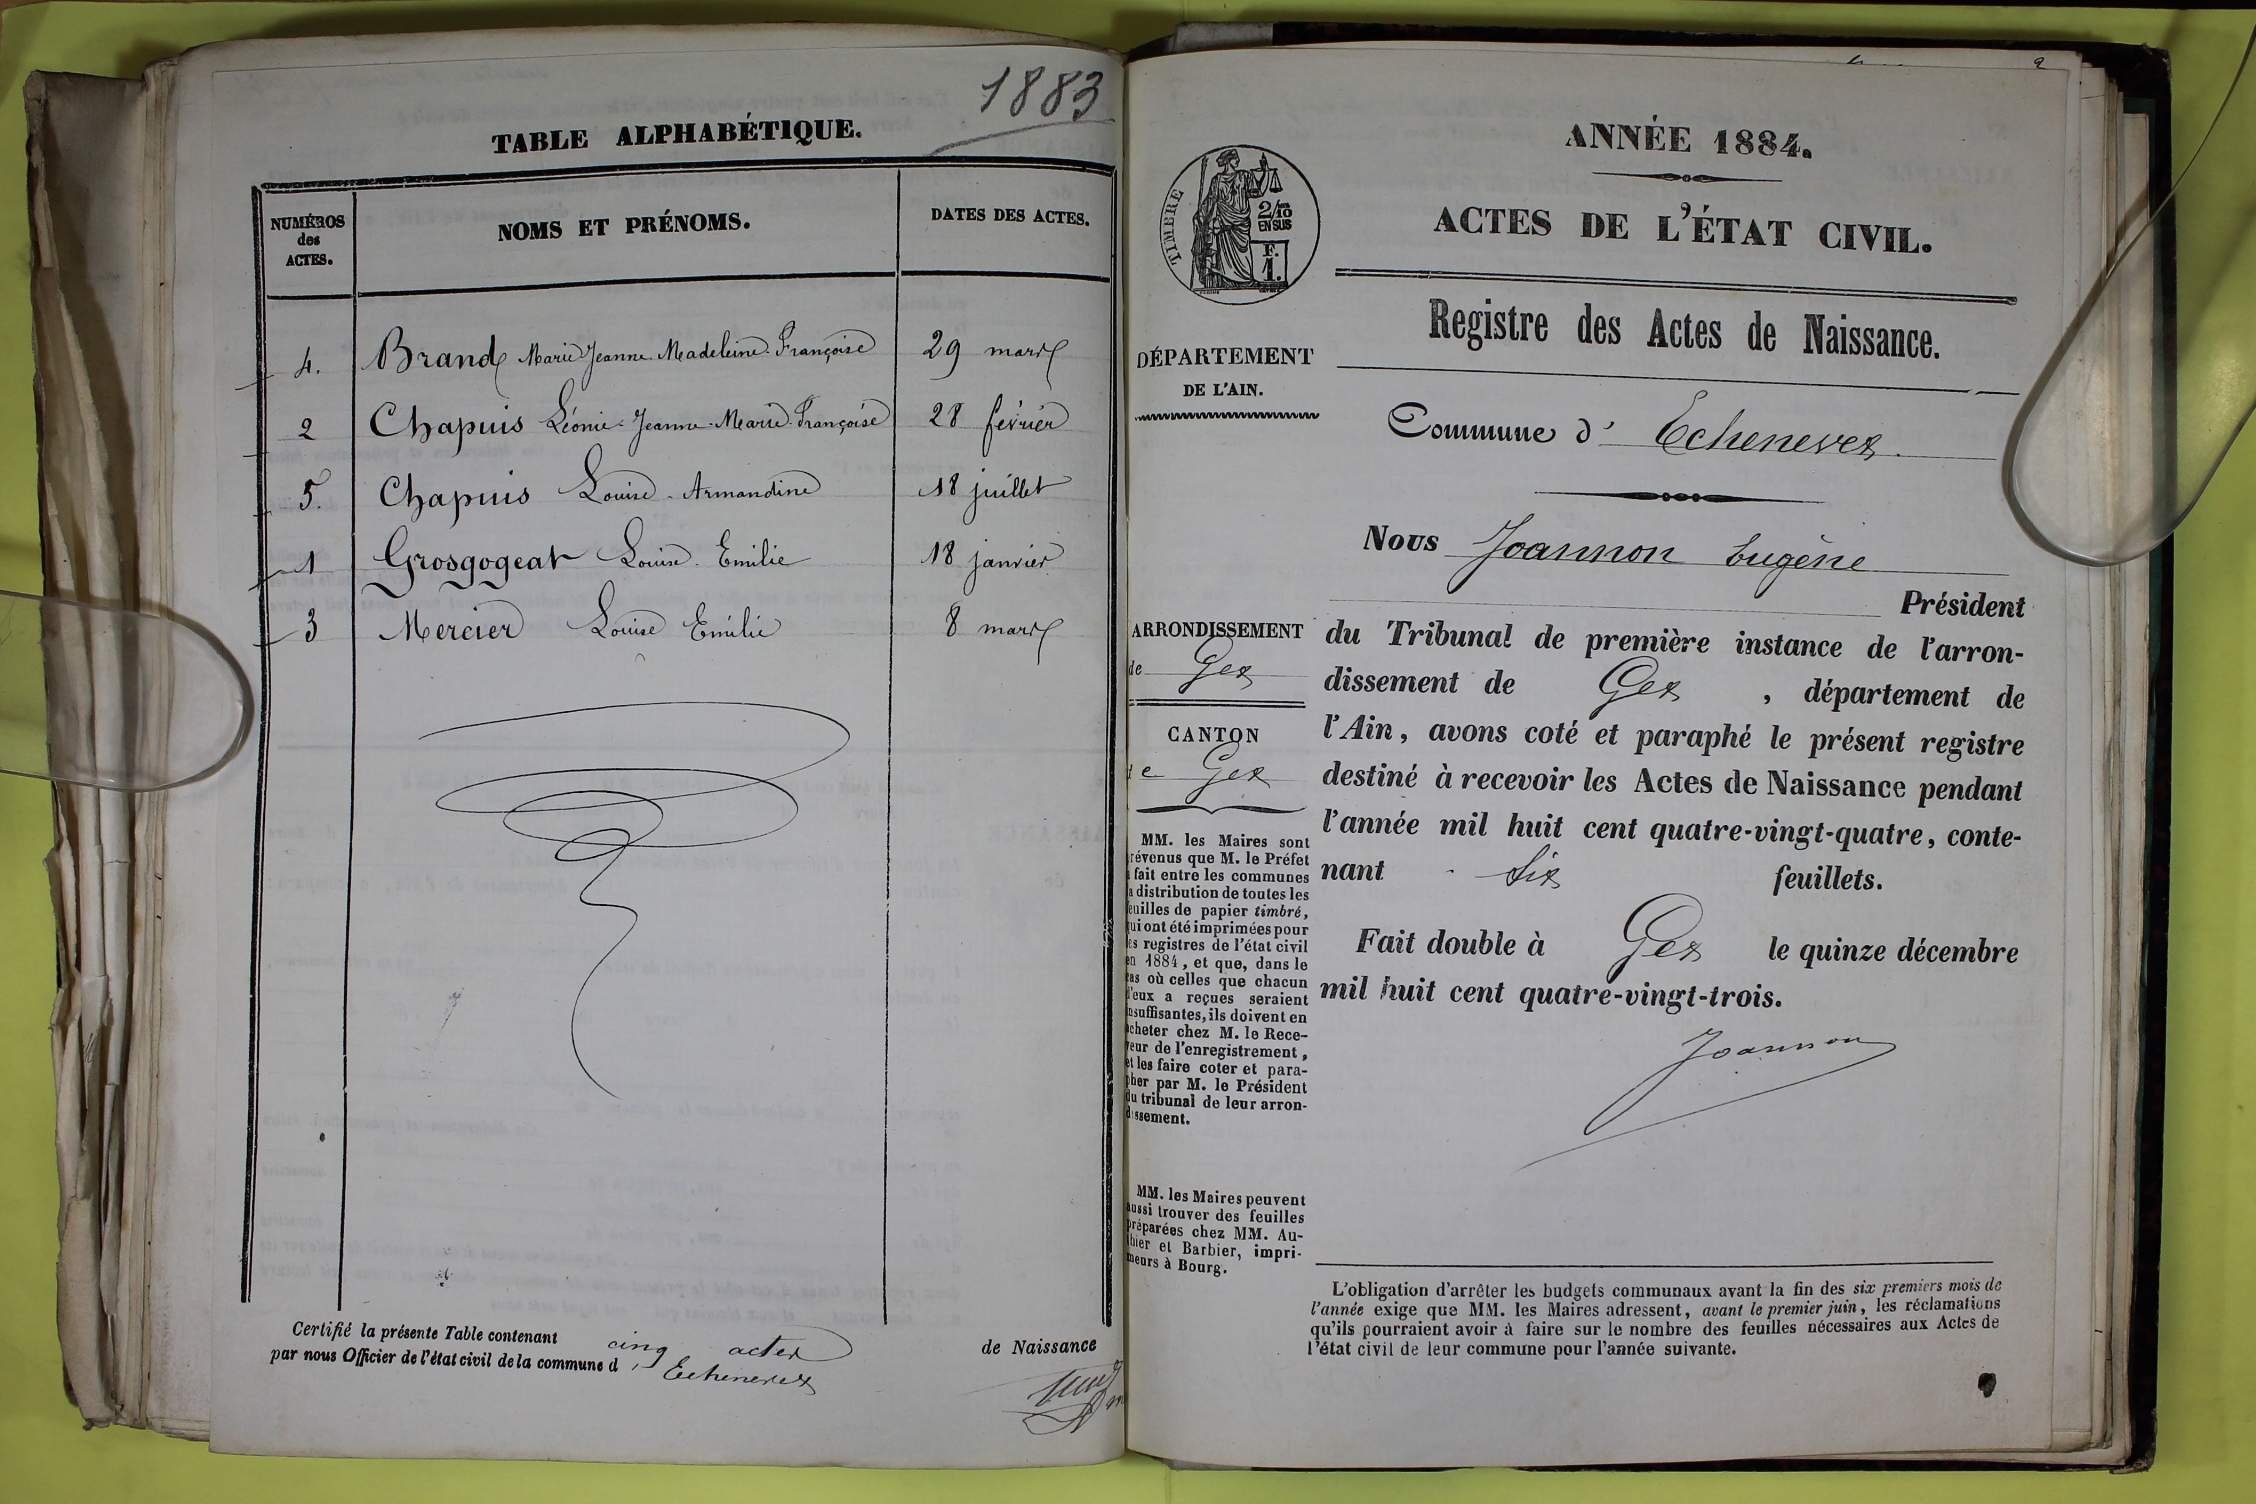 1883
TABLE ALPHABÉTIQUE.
NUMÉROS des ACTES.
NOMS ET PRÉNOMS.
DATES DES ACTES.
4. Brand Marie Jeanne Madeleine Françoise 29 mars
2 Chapuis Léonie Jeanne Marie Françoise 28 février
5. Chapuis Louise Armandine 18 juillet
1 Grosgogeat Louise Emilie 18 janvier
3 Mercier Louise Emilie 8 mars
Certifié la présente Table contenant cinq actes de Naissance
par nous Officier de l'état civil de la commune d'Echenevex
ANNÉE 1884.
ACTES DE L'ÉTAT CIVIL.
TIMBRE
2/10
EN SUS
F.
1.
Registre des Actes de Naissance.
DÉPARTEMENT
DE L'AIN.
Commune d'Echenevex.
Nous Joannon Eugène
Président
du Tribunal de première instance de l'arron-
dissement de Gex, département de
l'Ain, avons coté et paraphé le présent registre
destiné à recevoir les Actes de Naissance pendant
l'année mil huit cent quatre-vingt-quatre, conte-
nant six feuillets.
Fait double à Gex le quinze décembre
mil huit cent quatre-vingt-trois.
Joannon
ARRONDISSEMENT
de Gex
CANTON
de Gex
MM. les Maires sont
révenus que M. le Préfet
fait entre les communes
a distribution de toutes les
euilles de papier timbré,
ui ont été imprimées pour
es registres de l'état civil
en 1884, et que, dans le
as où celles que chacun
d'eux a reçues seraient
insuffisantes, ils doivent en
acheter chez M. le Rece-
veur de l'enregistrement,
et les faire coter et para-
pher par M. le Président
du tribunal de leur arron-
dissement.
MM. les Maires peuvent
aussi trouver des feuilles
préparées chez MM. Au-
thier et Barbier, impri-
meurs à Bourg.
L'obligation d'arrêter les budgets communaux avant la fin des six premiers mois de
l'année exige que MM. les Maires adressent, avant le premier juin, les réclamations
qu'ils pourraient avoir à faire sur le nombre des feuilles nécessaires aux Actes de
l'état civil de leur commune pour l'année suivante.